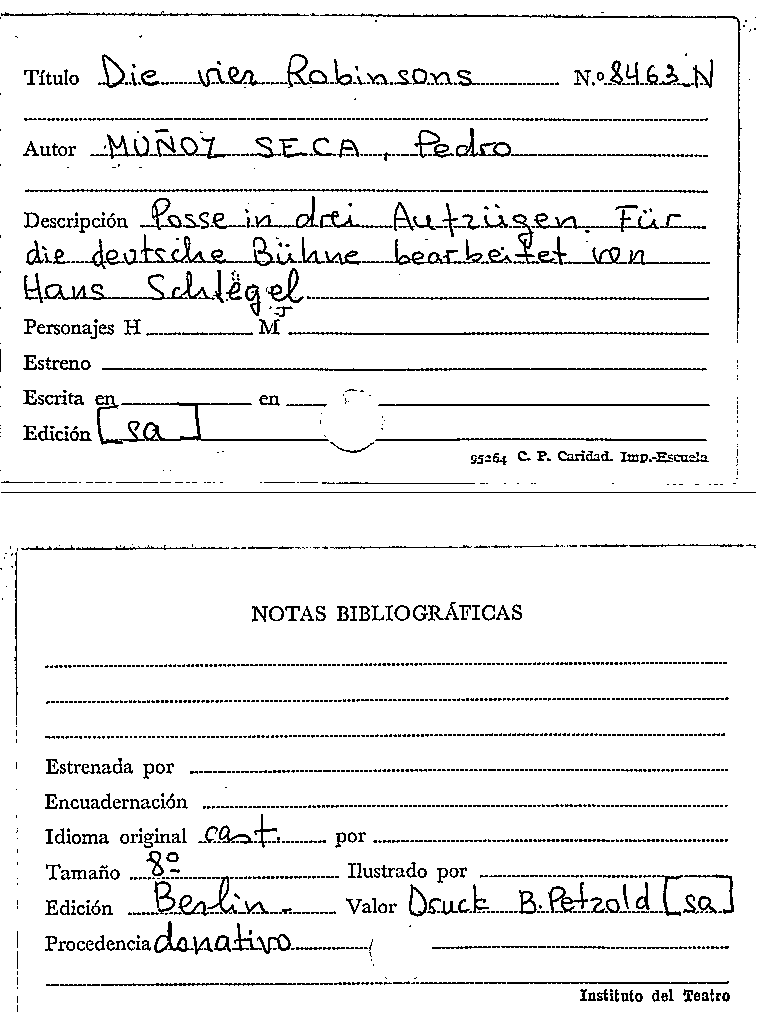 Título Die vier Robinsons N.º 8463 N
Autor MUÑOZ SECA, Pedro
Descripción Posse in drei Aufzügen. Für
die deutsche Bühne bearbeitet von
Hans Schlegel
Personajes H M
Estreno
Escrita en en
Edición [sa]
95264 C. P. Caridad. Imp.-Escuela
NOTAS BIBLIOGRÁFICAS
Estrenada por
Encuadernación
Idioma original cast. por
Tamaño 8º Ilustrado por
Edición Berlin.- Valor Druck B. Petzold [sa]
Procedencia donativo
Instituto del Teatro